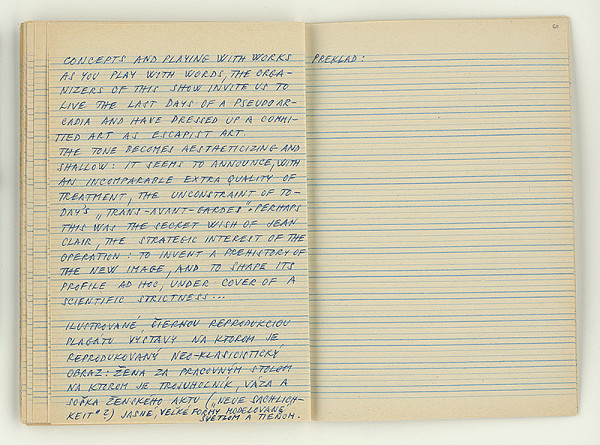 CONCEPTS AND PLAYING WITH WORKS
AS YOU PLAY WITH WORDS, THE ORGA-
NIZERS OF THIS SHOW INVITE US TO
LIVE THE LAST DAYS OF A PSEUDOAR-
CADIA AND HAVE DRESSED UP A COMMI-
TTED ART AS ESCAPIST ART.
THE TONE BECOMES AESTHETICIZING AND
SHALLOW: IT SEEMS TO ANNOUNCE, WITH
AN INCOMPARABLE EXTRA QUALITY OF
TREATMENT, THE UNCONSTRAINT OF TO-
DAY'S „TRANS-AVANT-GARDES". PERHAPS
THIS WAS THE SECRET WISH OF JEAN
CLAIR, THE STRATEGIC INTEREST OF THE
OPERATION: TO INVENT A PREHISTORY OF
THE NEW IMAGE, AND TO SHAPE ITS
PROFILE AD HOC, UNDER COVER OF A
SCIENTIFIC STRICTNESS...
ILUSTROVANÉ, ČIERNOU REPRODUKCIOU
PLAGÁTU VÝSTAVY NA KTOROM JE
REPRODUKOVANÝ NEO-KLASICISTICKÝ
OBRAZ: ŽENA ZA PRACOVNÝM STOLOM
NA KTOROM JE TROJUHOLNÍK, VÁZA A
SOŠKA ŽENSKÉHO AKTU („NEUE SACHLICH-
KEIT" ?) JASNÉ, VEĽKÉ FORMY MODELOVANÉ
SVETLOM A TIEŇOM.
PREKLAD: